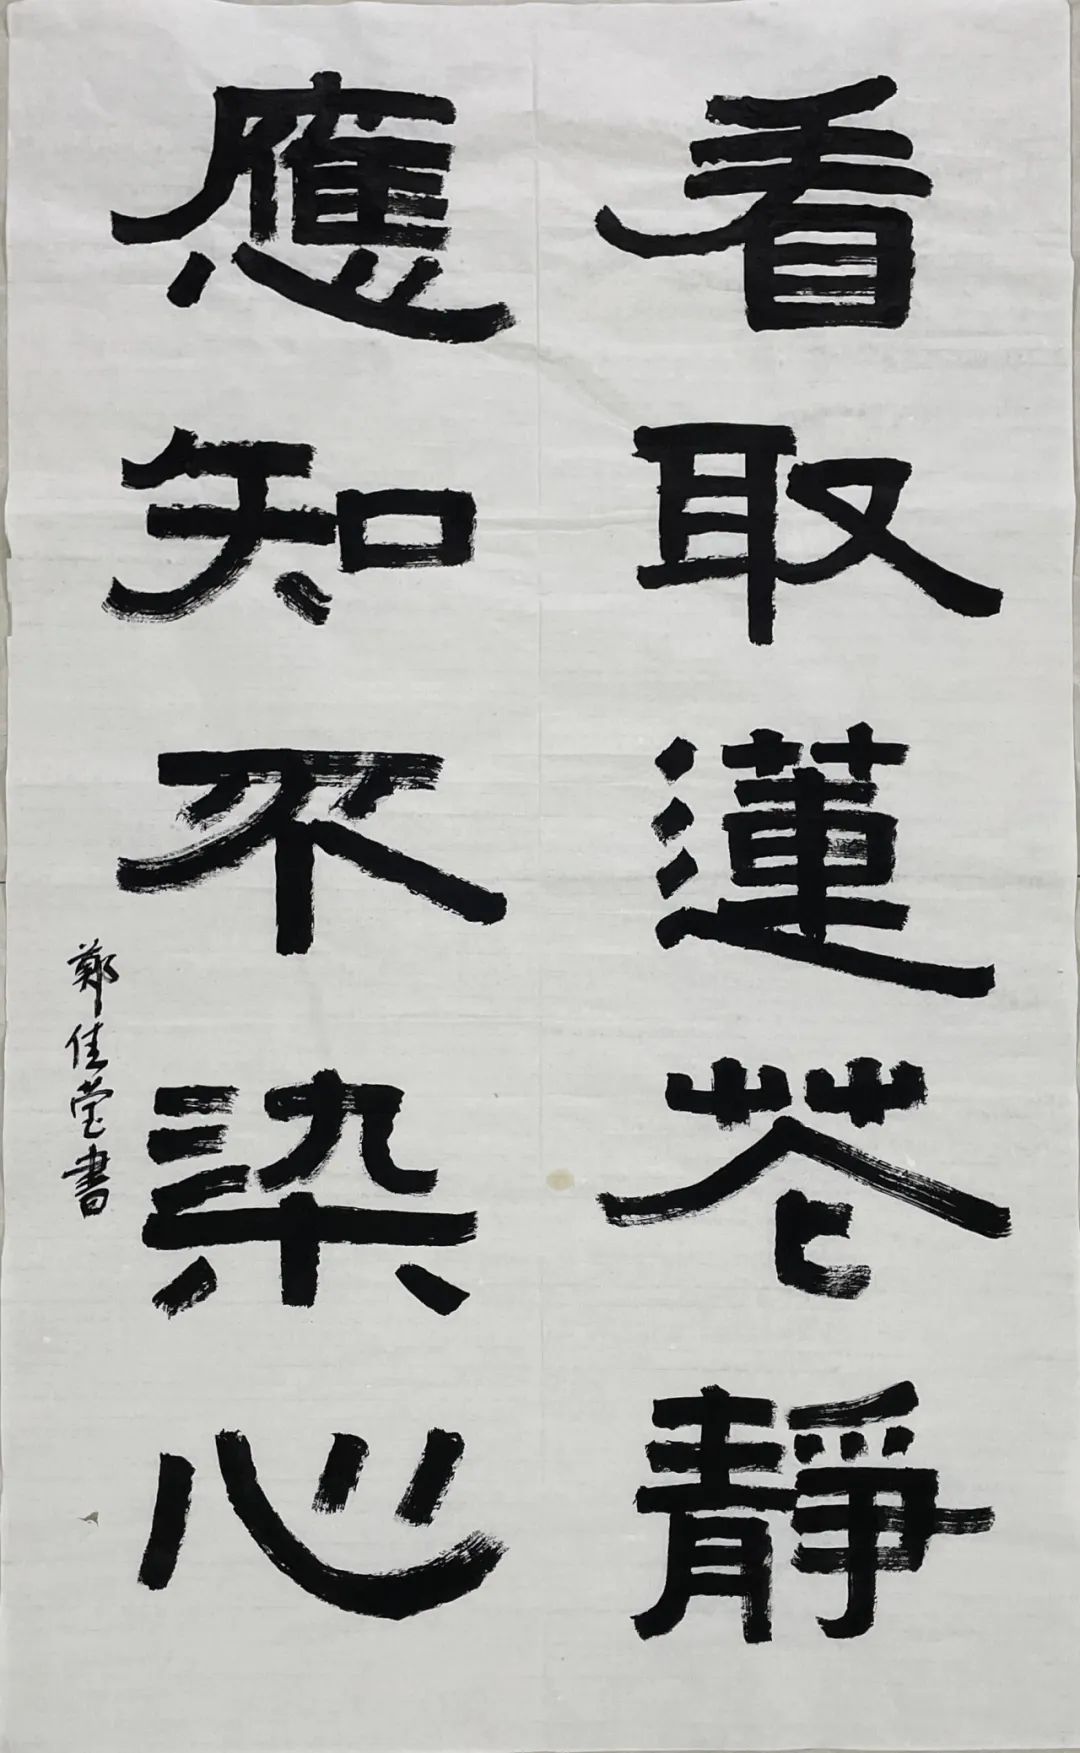 看取蓮花靜
應知不染心
鄭佳莹書